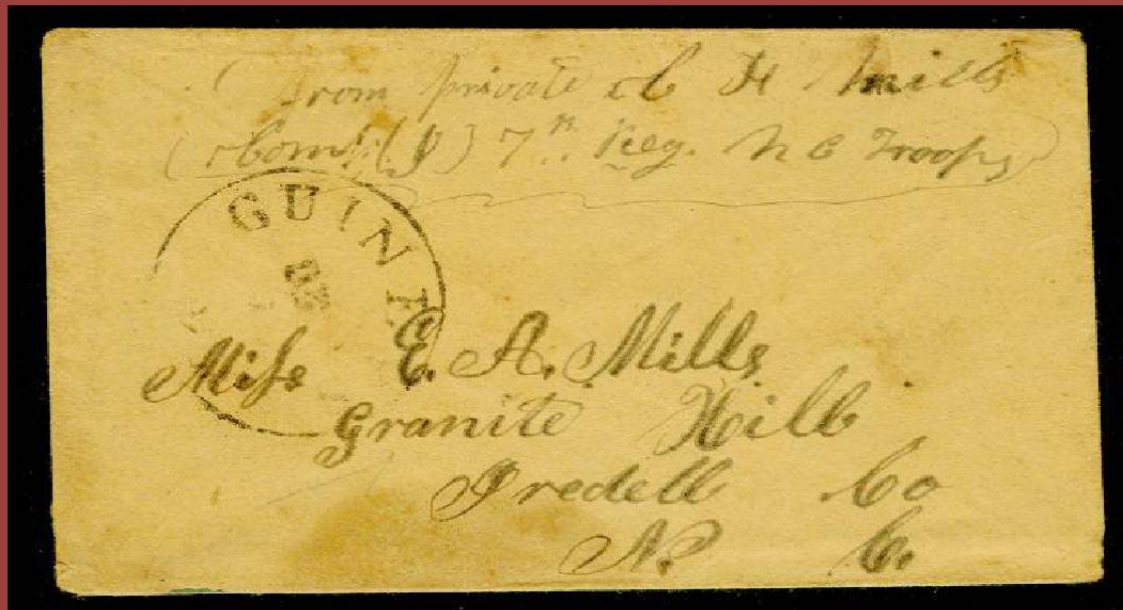 From private C H Mills
Comp. (I) 7th Reg. N C Troops
GUINE
Miſs E. A. Mills
Granite Hill
Iredell Co
N. C.